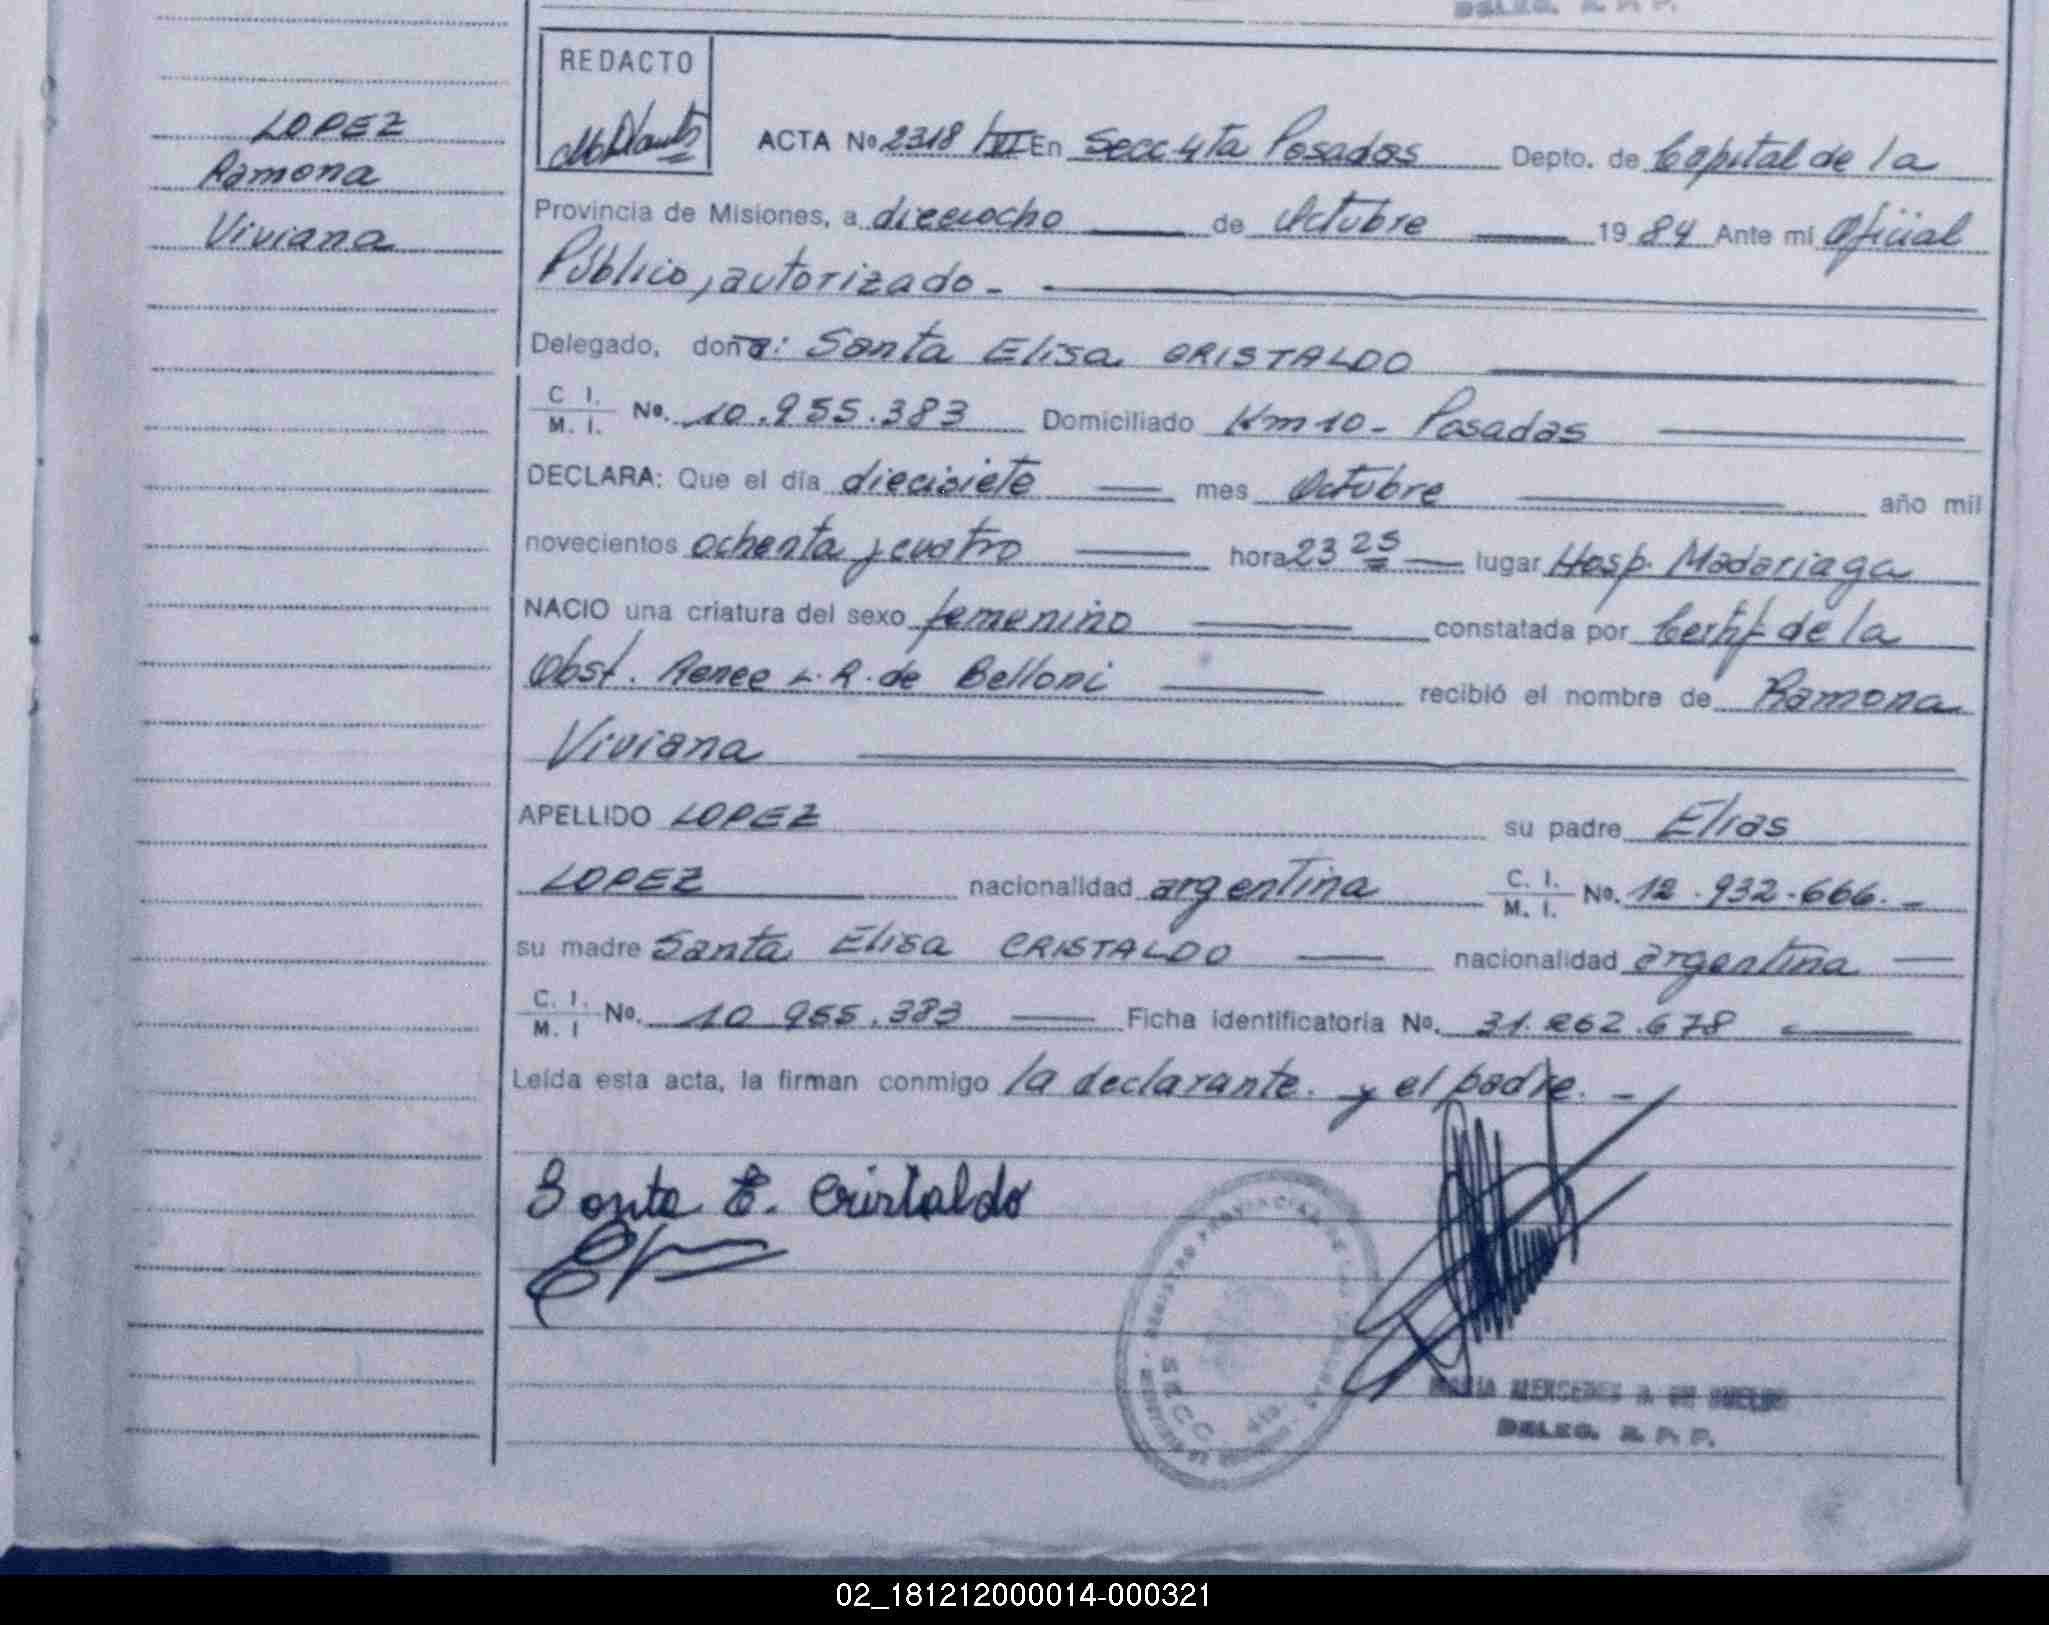 DELEG. R. P. P.
REDACTO
LOPEZ
Ramona
Viviana
ACTA Nº 2318 /VI En Secc 4ta Posadas Depto. de Capital de la
Provincia de Misiones, a dieciocho de Octubre 1984 Ante mí Oficial
Público, autorizado.-
Delegado, doña: Santa Elisa CRISTALDO
C. I. / M. I. Nº. 10.955.383 Domiciliado Km 10 - Posadas
DECLARA: Que el día diecisiete mes Octubre año mil
novecientos ochenta y cuatro hora 23 25 lugar Hosp. Madariaga
NACIO una criatura del sexo femenino constatada por Certif de la
Obst. Renee L. R. de Belloni recibió el nombre de Ramona
Viviana
APELLIDO LOPEZ su padre Elias
LOPEZ nacionalidad argentina C. I. / M. I. Nº. 12.932.666.-
su madre Santa Elisa CRISTALDO nacionalidad argentina
C. I. / M. I Nº. 10 955.383 Ficha identificatoria Nº. 31.262.678
Leída esta acta, la firman conmigo la declarante. y el padre.-
Santa E. Cristaldo
REGISTRO PROVINCIAL DE LAS PERSONAS
SECC. 4ta.
MARIA MERCEDES
DELEG. R. P. P.
02_181212000014-000321